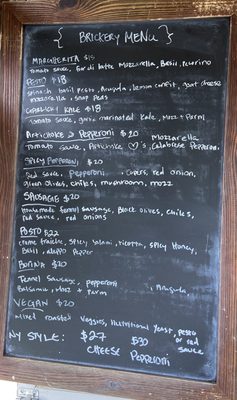 { BRICKERY MENU }
MARGHERITA $15
tomato sauce, fior di latte Mozzarella, Basil, Pecorino
PESTO $18
spinach basil pesto, Arugula, lemon confit, goat cheese
mozzarella, snap peas
GARLICKY KALE $18
Tomato sauce, garlic marinated Kale, Mozz + Parm
Artichoke & Pepperoni $20 Mozzarella
tomato sauce, Artichoke ♡'s, Calabrese Pepperoni,
SPICY PEPPERONI $20
Red sauce, Pepperoni, capers, red onion,
green olives, chilies, mushroom, mozz
SAUSAGE $20
Homemade fennel sausage, Black olives, chiles,
red sauce, red onions
$22
creme fraiche, spicy salami, ricotta, spicy Honey,
Basil, aleppo Pepper
$20
Fennel Sausage, pepperoni, Arugula
Balsamic, Mozz + Parm
VEGAN $20
mixed roasted veggies, Nutritional yeast, pesto
or red
sauce
NY STYLE: $27 $30
CHEESE PEPPERONI